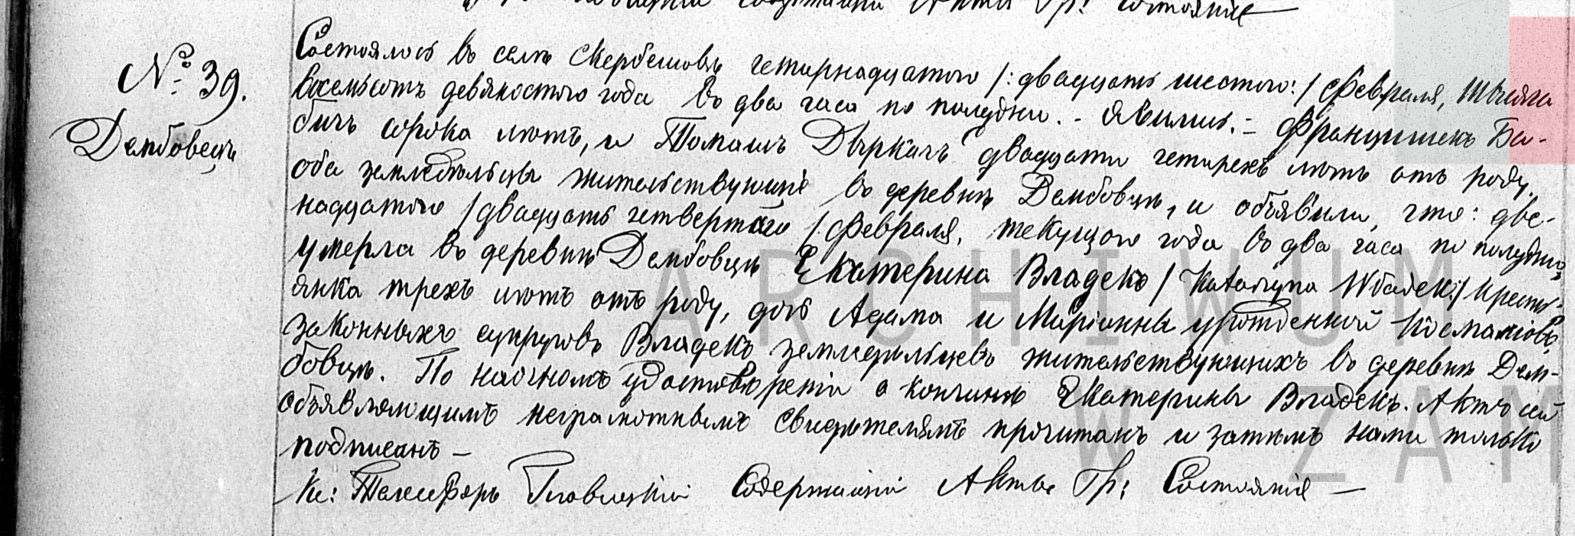 содержащій Акты Гр: Состоянія
№ 39.
Дембовецъ
Состоялось въ селѣ Скербешовѣ четырнадцатого /:двадцать шестого:/ Февраля, тысяча
восемьсотъ девяностого года въ два часа по полудни. - Явились: - Францишекъ Ба-
бичъ сорока лѣтъ, и Томашъ Дыркачъ двадцати четырехъ лѣтъ отъ роду,
оба земледѣльцы жительствующіе въ деревни Дембовцѣ, и объявили, что: две-
надцатого /двадцать четвертаго/ Февраля, текущого года въ два часа по полудню,
умерла въ деревни Дембовцѣ Екатерина Владекъ / Katarzyna Władek:/ кресть-
янка трехъ лѣтъ отъ роду, дочь Адама и Маріанны урожденной
законныхъ супруговъ Владекъ земледѣльцевъ жительствующихъ въ деревни Дем-
бовцѣ. По наочномъ удостовѣреніи о кончинѣ Екатерины Владекъ. Актъ сей
объявляющимъ неграмотнымъ свидѣтелямъ прочитанъ и затѣмъ нами только
подписанъ —
Кс: Телесфоръ Содержащій Акты Гр: Состоянія —
ARCHIWUM
W ZAM